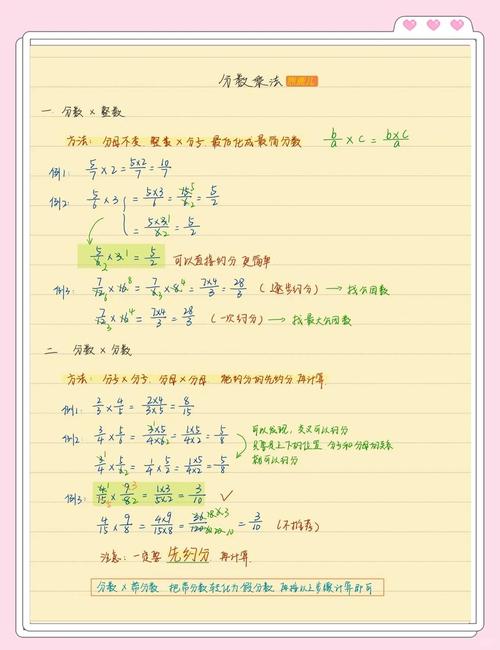 分数乘法
一 分数×整数
方法: 分母不变 整数×分子, 最后化成最简分数 b/a × c = b×c/a
例1: 5/7 ×2 = 5×2/7 = 10/7
例2: 5/6 ×3 = 5×3/6 = 15/6 = 5/2
= 5×3/6 = 5/2
5/6 ×3 = 5/2 可以直接约分 更简单
例3: 7/12 ×16 = 7/6 × 8 = 7×4/3 = 28/3 (逐步约分) → 找公因数
7/12 ×16 = 7×4/3 = 28/3 (一次约分) → 找最大公因数
二 分数×分数
方法: 分子×分子, 分母×分母 能约分的先约分 再计算
例1: 2/3 × 4/5 = 2×4/3×5 = 8/15
例2 3/4 × 5/6 = 3×5/4×6 = 1×5/4×2 = 5/8
可以发现, 交叉可以约分
只要是上下的位置 分子和分母的关系
都可以约分
3/4 × 5/6 = 1/4 × 5/2 = 1×5/4×2 = 5/8
例3: 4/15 × 9/8 = 1×3/5×2 = 3/10 ✓
4/15 × 9/8 = 4×9/15×8 = 36/120 = 3/10 (不推荐)
注意: 一定要 先约分 再计算
分数×带分数 把带分数转化为假分数, 再按以上步骤计算即可